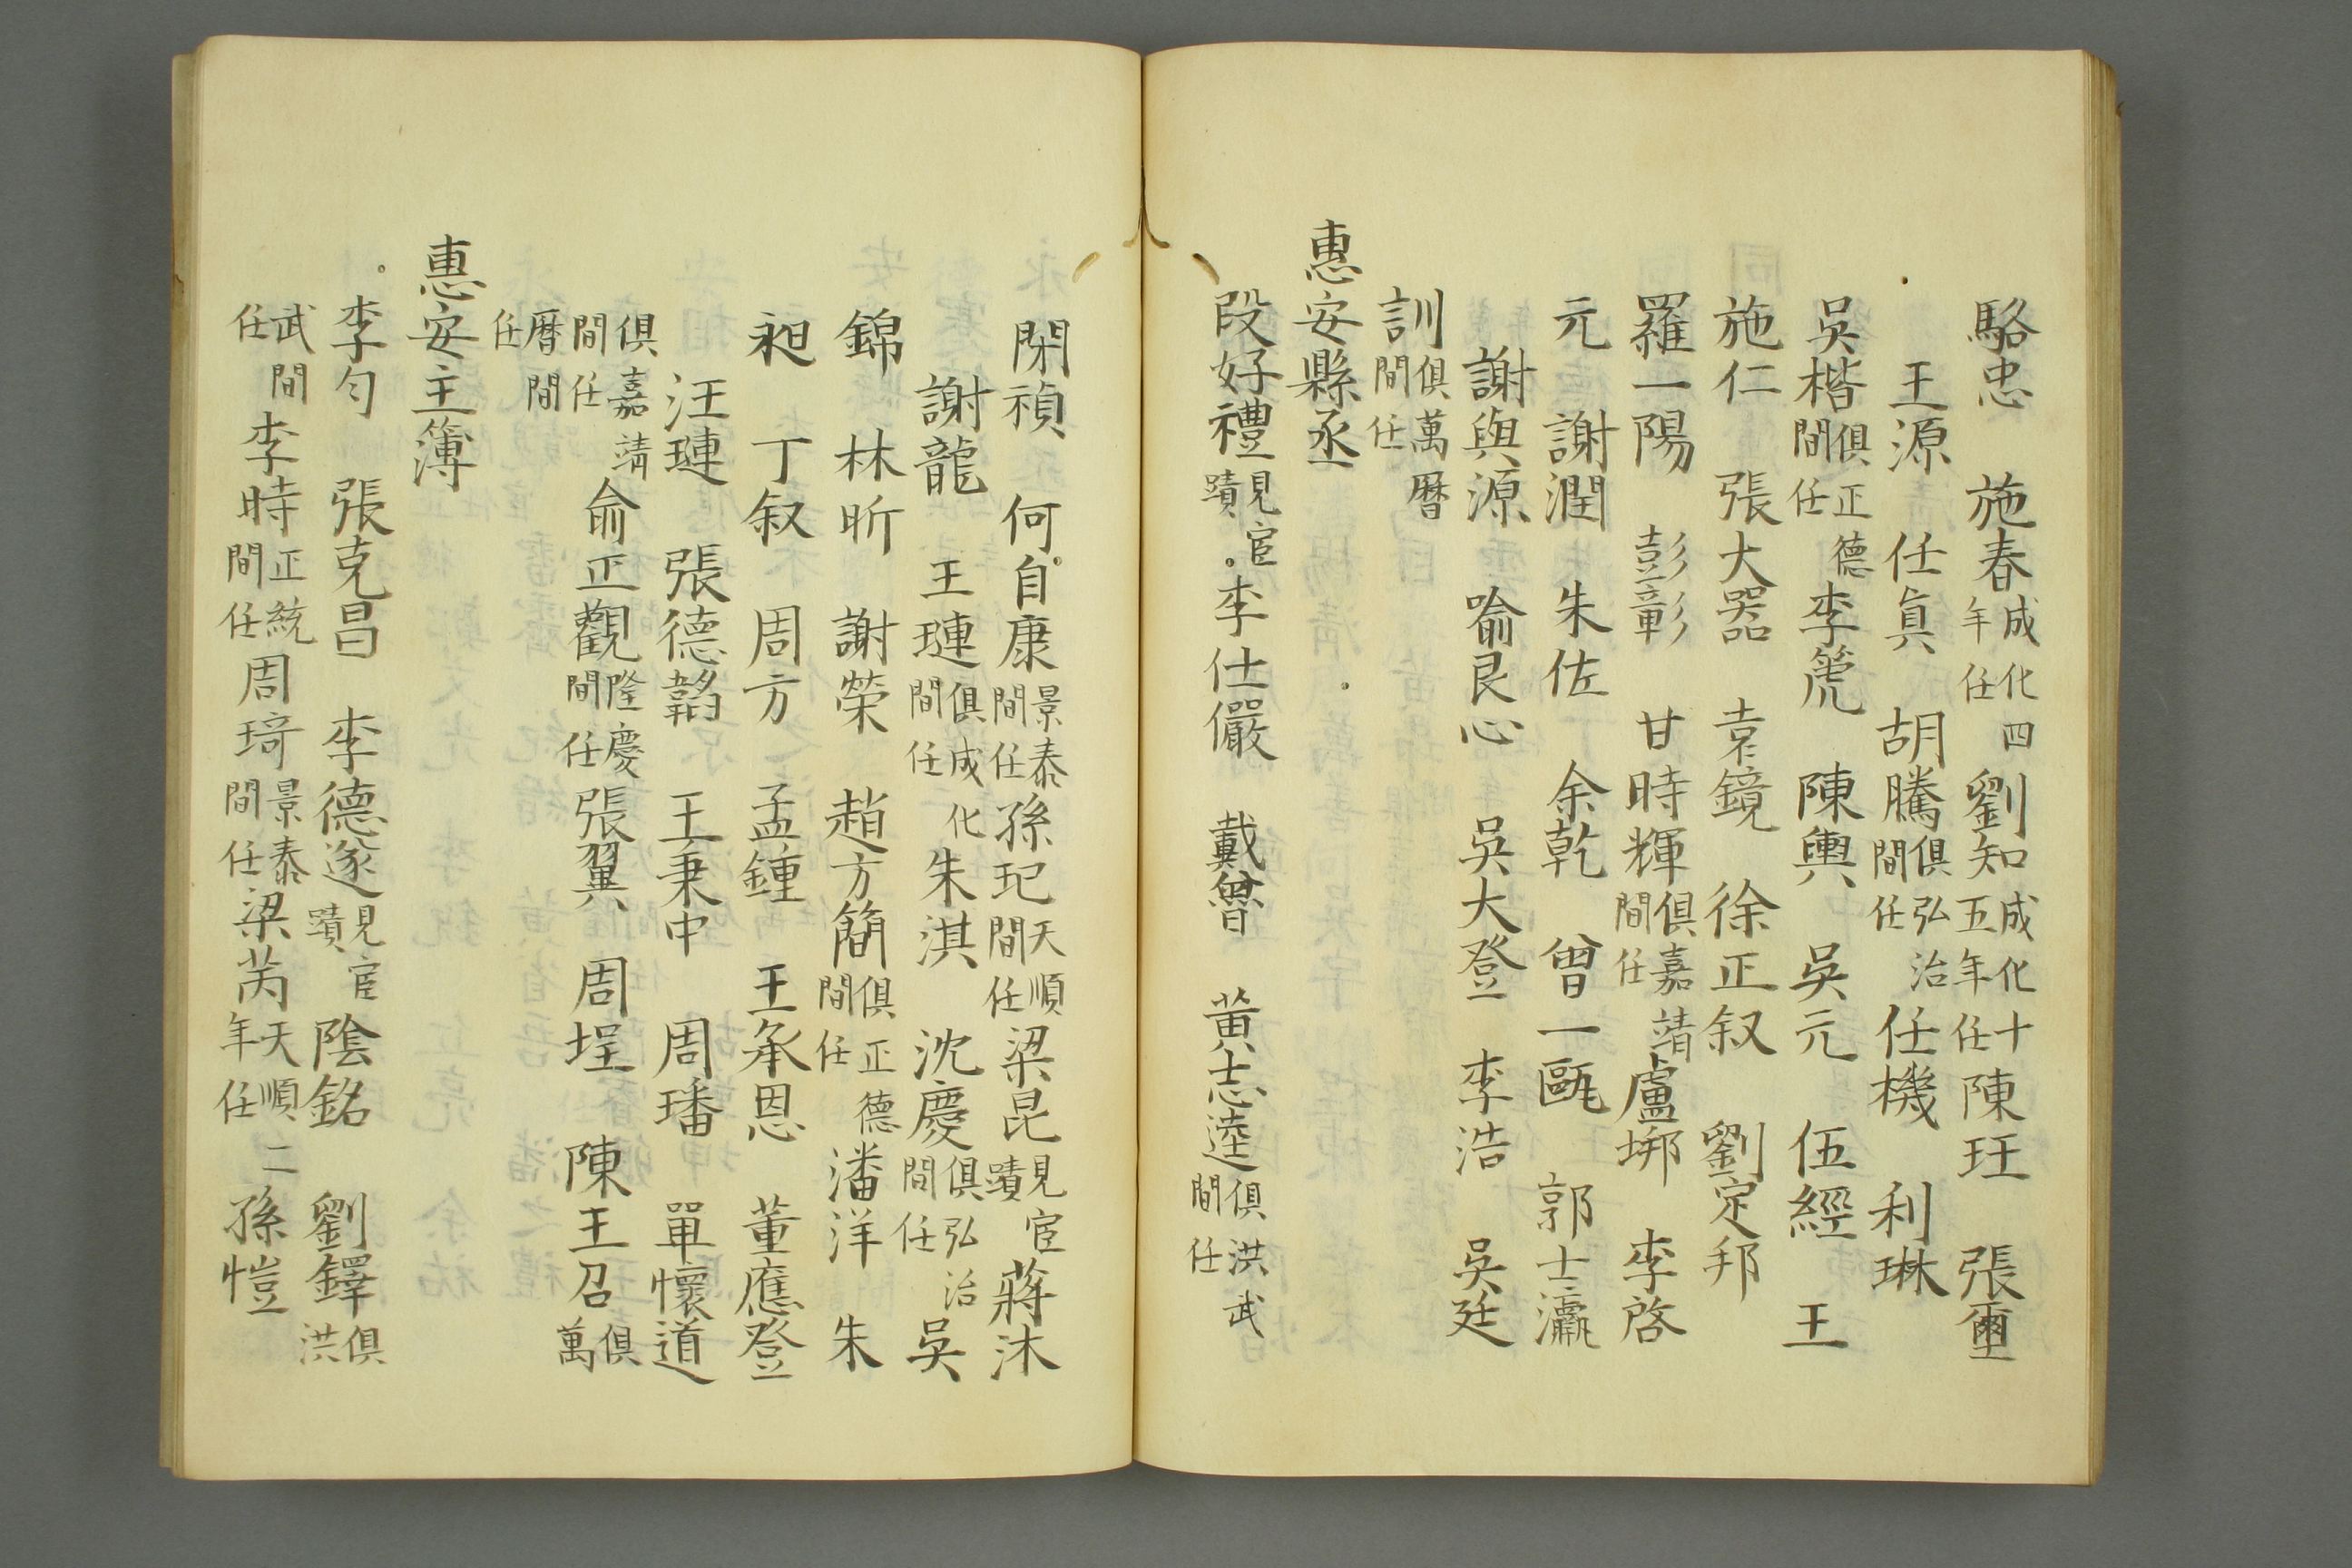 駱忠　施春成化四年任劉知成化十五年任陳玨　張璽
王源　任眞　胡騰俱弘治間任　任機　利琳
吳楷俱正德間任李箎　陳輿　吳元　伍經　王
施仁　張大器　袁鏡　徐正叙　劉定邦
羅一陽　彭彰　甘時輝俱嘉靖間任盧垹　李啓
元　謝潤　朱佐　余乾　曾一甌　郭士瀛
謝與源　喻良心　吳大登　李浩　吳廷
訓俱萬曆間任
惠安縣丞
段好禮見宦蹟李仕儼　戴曾　黃志逵俱洪武間任
閑禎　何自康景泰間任孫玘天順間任梁昆見宦蹟蔣沐
謝龍　王璉俱成化間任朱淇　沈慶俱弘治間任吳
錦　林昕　謝榮　趙方簡俱正德間任潘洋　朱
昶　丁叙　周方　孟鍾　王承恩　董應登
汪璉　張德韜　王秉中　周璠　單懷道
俱嘉靖間任俞正觀隆慶間任張翼　周埕　陳王召俱萬
曆間任
惠安主簿
李勻　張克昌　李德遂見宦蹟陰銘　劉鐸俱洪
武間任李時正統間任周琦景泰間任梁芮天順二年任孫愷